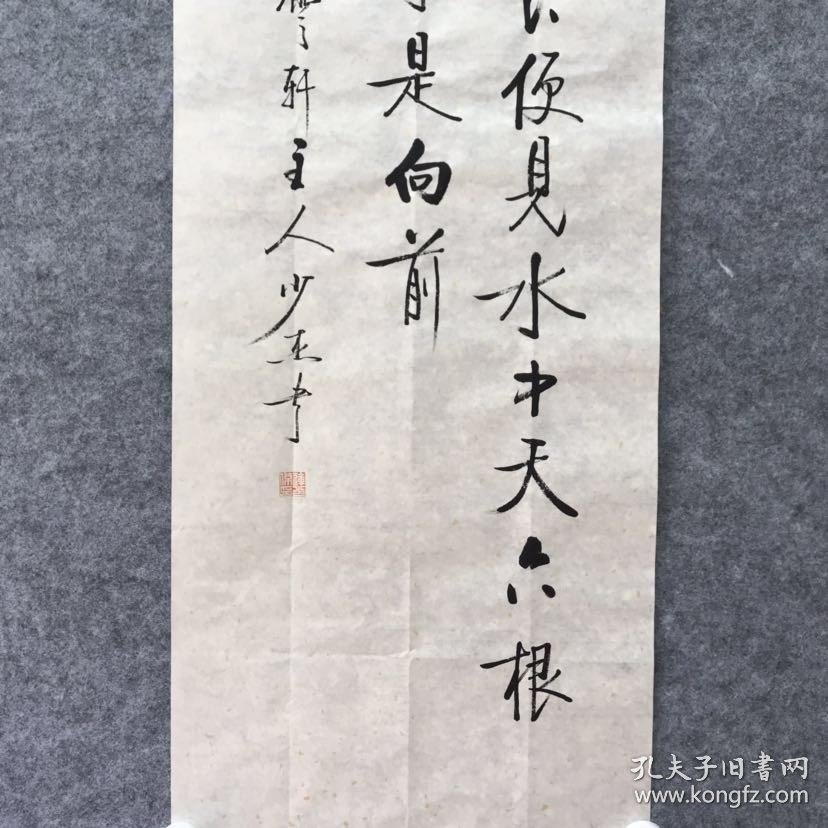 便見水中天六根
是向前
軒主人少杰書
孔夫子旧書网
www.kongfz.com